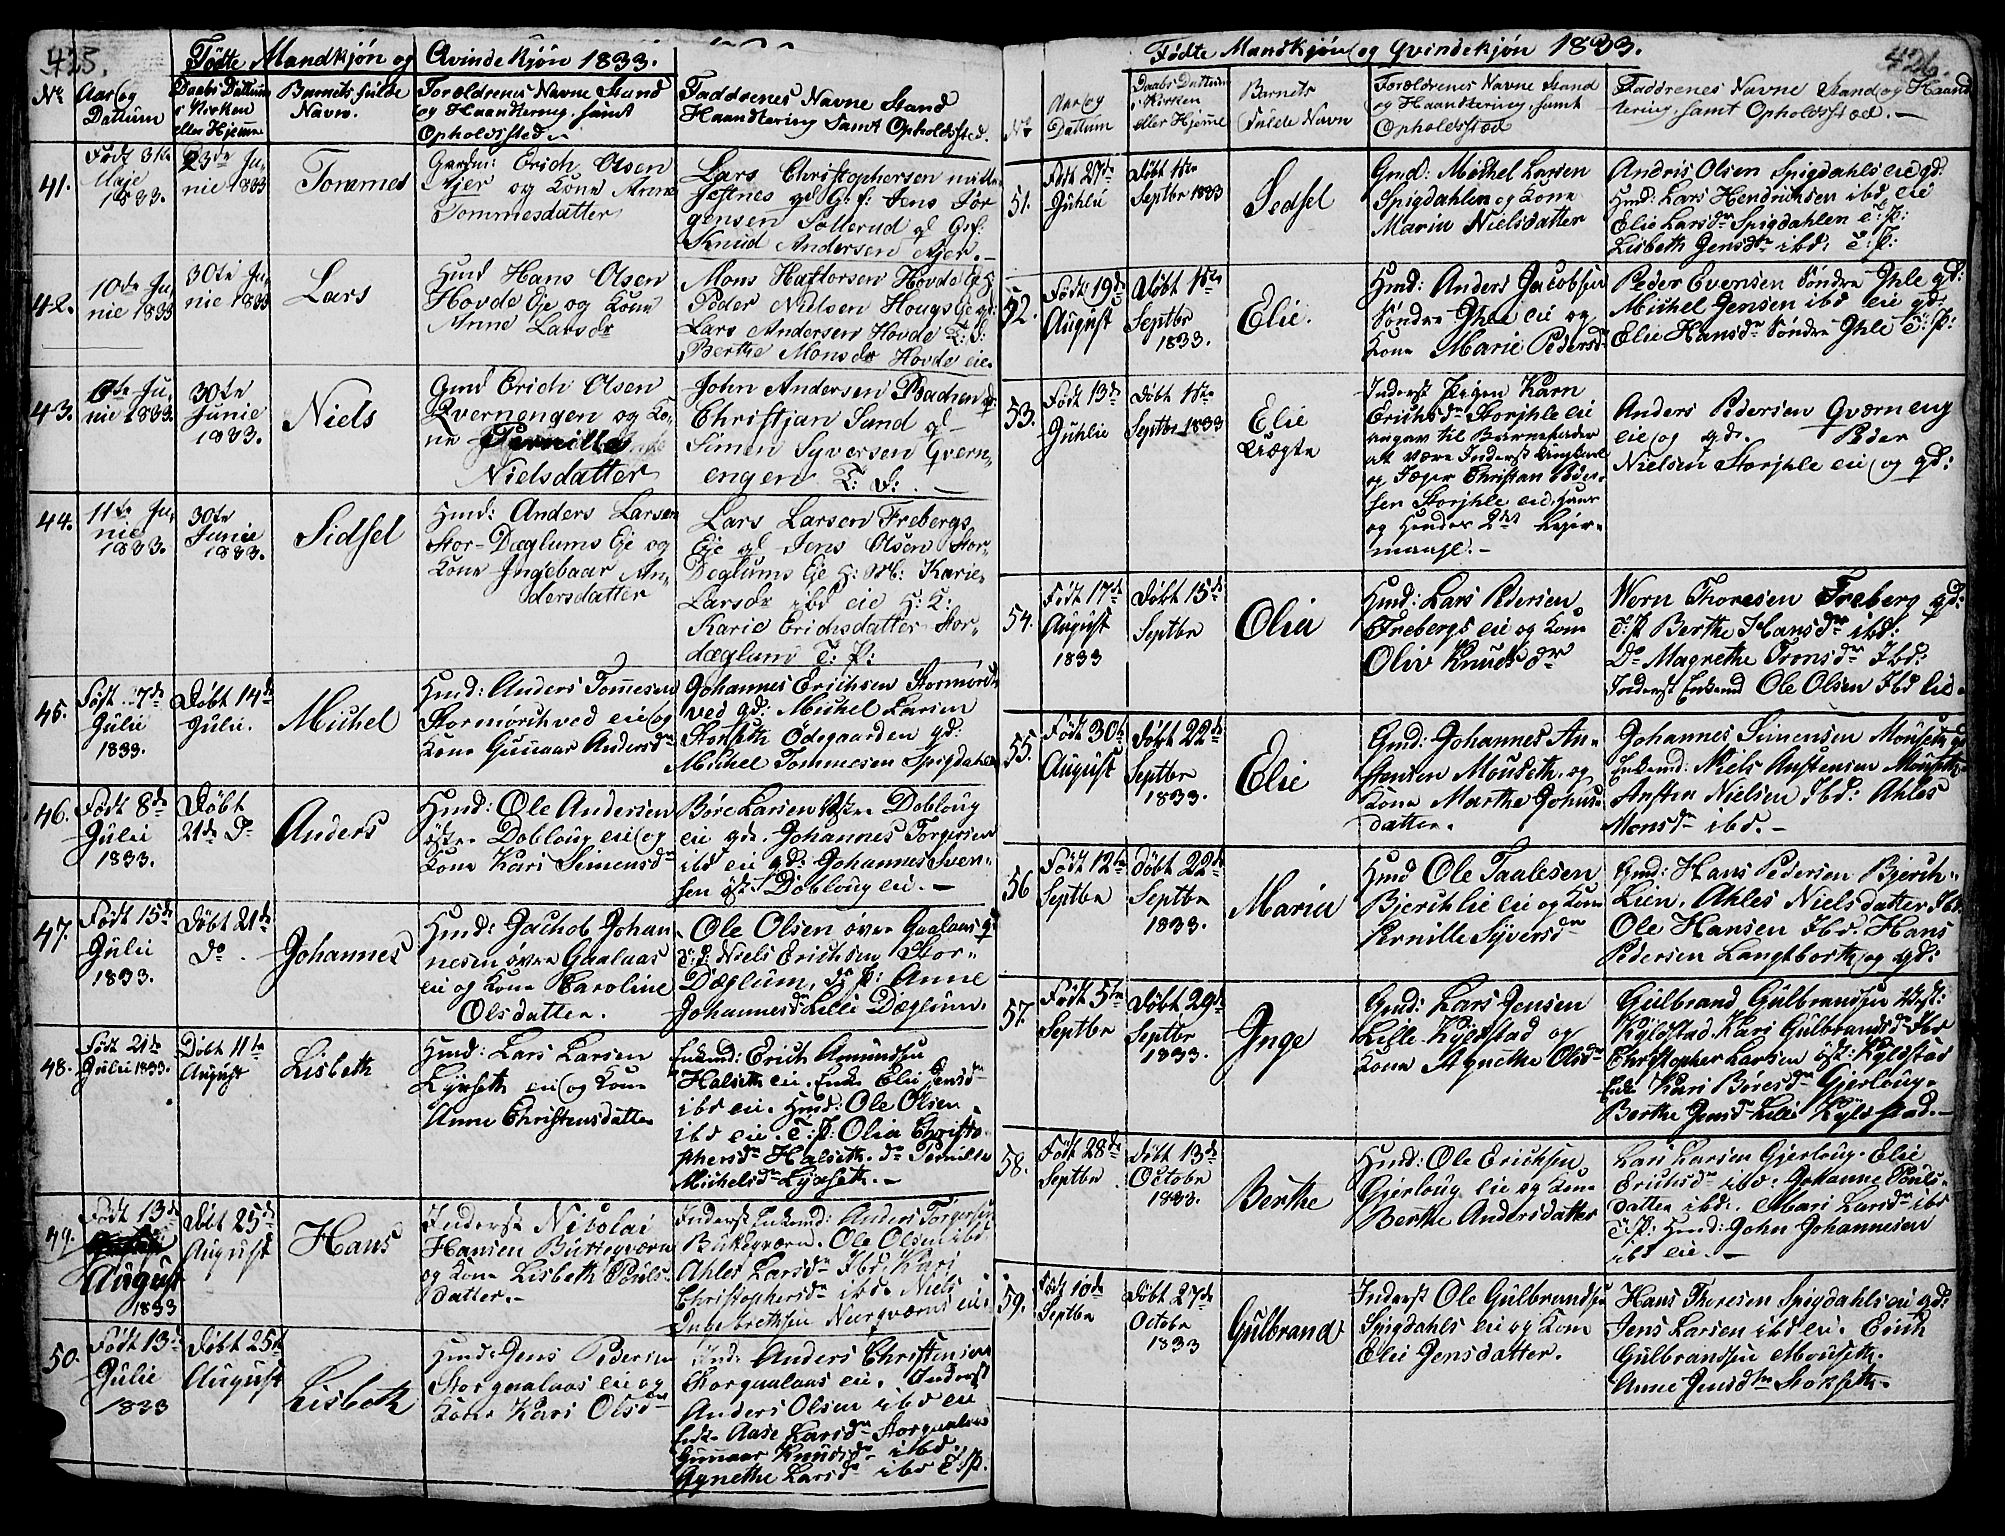 425.
Fødte Mandkjøn og Qvindekjøn 1833.
No
Aar og
Dattum
Daabs Dattum
i Kirken
eller Hjemme
Barnets fulde
Navn.
Forældrenes Navne Stand
og Haandtering, samt
Opholdssted.
Faddrenes Navne Stand
Haandtering Samt Opholdssted.
41.
Født 3die
Maje
1833.
23de Ju-
nie 1833
Tommes
Erich Olsen
og Kone Anne
Tommesdatter
Lars Christophersen
Jens Jør
gensen Sollerud
Knud Andersen Ajer.
42.
10de Ju-
nie 1833
30te Ju-
nie 1833
Lars
Huusd Hans Olsen
Hovde Eje og Kone
Anne Larsdr
Mons Haftorsen Hovde
Peder Nielsen Hougs Eje gd:
Lars Andersen Hovde
Berthe Monsdr Hovde eie.
43.
6te Ju-
nie 1833.
30te
Junie
1833.
Niels
Gmd Erich Olsen
Qvernengen og Ko-
ne Pernille
Nielsdatter
John Andersen Bachen
Christjan Sand
Simen Syversen Qvern-
engen
44.
11te Ju-
nie
1833.
30te
Junie
1833.
Sidsel
Huusd: Anders Larsen
Stor-Dæglums Eje og
Kone Ingebaar An-
dersdatter
Lars Larsen Frebergs
Eje Jens Olsen Stor-
Deglums Eje H: M: Karie
Larsdr ibd eie H: K:
Karie Erichsdatter Stor-
dæglum T: P:
45.
Født 7de
Julii
1833.
Døbt 14de
Julii.
Michel
Huusd: Anders Tomesen
Stormørchved eie og
Kone Gunnar Andersdr
Johannes Erichsen Stormørch-
ved gd: Michel Larsen
Stokseth Ødegaarden gd:
Michel Tommesen Spigdahlen
46.
Født 8de
Julii
1833.
Døbt
21de Do
Anders
Huusd: Ole Andersen
østre Dobloug eie og
Kone Kari Simensdr
Børe Larsen Østre Dobloug
eie gd. Johannes Torgersen
ibd eie gd: Johannes Sven-
sen øst: Dobloug eie.
47.
Født 15de
Julii
1833.
Døbt 21de
Do.
Johannes
Huusd: Jachob Johan-
nesen øvre Gaalaas
eie og Kone Caroline
Olsdatter.
Ole Olsen øvre Gaalaas
Niels Erichsen Stor-
Dæglum, do P: Anne
Johannesdr Lille Dæglum.
48.
Født 21de
Julii 1833.
Døbt 11te
August
Lisbeth
Huusd: Lars Larsen
Lyseth eie og Kone
Anne Christensdatter
Enkemd: Erich Amundsen
Halseth eie. Enke Elie Jensdr
ibd eie. Huusd: Ole Olsen
ibd eie. T: P: Olia Christo-
phersdr Halseth. do Pernille
Michelsdr Lyseth.
49.
Født 13de
August
1833
Døbt 25de
August
Hans
Inderst Nicolai
Hansen Butteqværn
og Kone Lisbeth Pouls-
datter.
Inderst Enkemd: Anders Torgersen
Buttqværn. Ole Olsen ibd
Ahles Larsdr Ibd. Kari
Christophersdr ibd. Niels
Ingebrethsen Nerqværns eie.
50.
Født 13de
Julii
1833
Døbt 25te
August
Lisbeth
Huusd: Jens Pedersen
Storgaalaas eie og
Kone Kari Olsdr
Anders Christensen
Storgaalaas eie. Inderst
Anders Olsen ibd eie
Enke Aase Larsdr Storgaalaas
Gunnar Knudsdr ibd.
Agnethe Larsdr ibd T: P.
426.
Fødte Mandkjøn og Qvindekjøn 1833.
No
Aar og
Dattum
Daabs Dattum
i Kirken
eller Hjemme
Barnets
Fulde Navn
Forældrenes Navne Stand
og Haandtering, samt
Opholdssted
Faddrenes Navne Stand og Haand
tering, samt Opholdssted.
51.
Født 27de
Juhlii
Døbt 1ste
Septbr 1833
Sedsel
Gmd: Michel Larsen
Spigdahlen og Kone
Maria Nielsdatter
Andris Olsen Spigdahls eie gd:
Huusd: Lars Hendrichsen ibd eie
Elie Larsdr Spigdahlen T: P:
Lisbeth Jensdtr ibd: T: P:
52.
Født 19de
August
Døbt 1ste
Septbr
1833.
Elie.
Huusd: Anders Jacobsen
Søndre Ihle eie og
Kone Marie Pedersdr
Peder Evensen Søndre Ihle gd:
Michel Jensen ibd eie gd:
Elie Hansdr Søndre Ihle T: P:
53.
Født 13de
Juhlii
Døbt 1ste
Septbr 1833
Elie
Uægte
Inderst Pigen Karn
Erichsdr Storihle eie
angav til Barnefader
att være Inderst Ungkarl
og Jæger Christian Peder-
sen Storihle eie, hans
og hendes 2det Lejer-
maahl.
Anders Pedersen Qværneng
eie og gd. Peder
Nielsen Storihle eie og gd:
54.
Født 17de
August
1833
Døbt 15de
Septbr
Olia
Huusd: Lars Pedersen
Frebergs eie og Kone
Oliv Knudsdr
Wern Thoresen Freberg gd:
T: P Berthe Hansdr ibd:
Do Magrethe Tronsdr Ibd:
Inderst Enkemd Ole Olsen Ibd eie.
55.
Født 30te
August
Døbt 22de
Septbr
1833.
Elie
Gmd: Johannes An-
stensen Mouseth og
Kone Marthe Johans-
datter.
Johannes Simensen Mouseth gd
Enkemd: Niels Anstensen Mouseth
Ansten Nielsen Ibd: Ahles
Monsdr ibd.
56
Født 12te
Septbr
Døbt 22de
Septbr
1833.
Maria
Huusd Ole Taalesen
Bjerchlie eie og Kone
Pernille Syversdr
Gmd: Hans Pedersen Bjerch-
Lien. Ahles Nielsdatter Ibd.
Ole Hansen Ibd. Hans
Pedersen Langtborth og gd:
57.
Født 5te
Septbr
Døbt 29de
Septbr
1833.
Inge
Gmd: Lars Jensen
Lille Kyldstad og
Kone Agnethe Olsdr
Gulbrand Gulbrandsen Vest:
Kyldstad. Kari Gulbrandsdr Ibd
Christopher Larsen øst: Kyldstad
Enke Kari Børesdr Gjerloug.
Berthe Jensdr Lille Kyldstad.
58.
Født 28de
Septbr
Døbt 13de
October
1833.
Berthe
Huusd: Ole Ericksen
Gjerloug eie og Kone
Berthe Andersdatter
Lars Larsen Gjerloug. Elie
Erichsdr ibd. Johanne Pouls-
datter ibd. Mari Larsdr ibd
T: P: Huusd: John Johannesen
ibd eie.
59.
Født 10de
Septbr
Døbt 27de
October
1833
Gulbrand
Inderst Ole Gulbrandsen
Spigdahls eie og Kone
Elie Jensdatter.
Hans Thoresen Spigdahls eie gd:
Jens Larsen ibd eie. Erich
Gulbrandsen Mouseth.
Anne Jensdtr Stokseth.